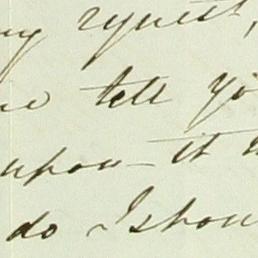 my request,
me tell yo
upon - it
do I shou